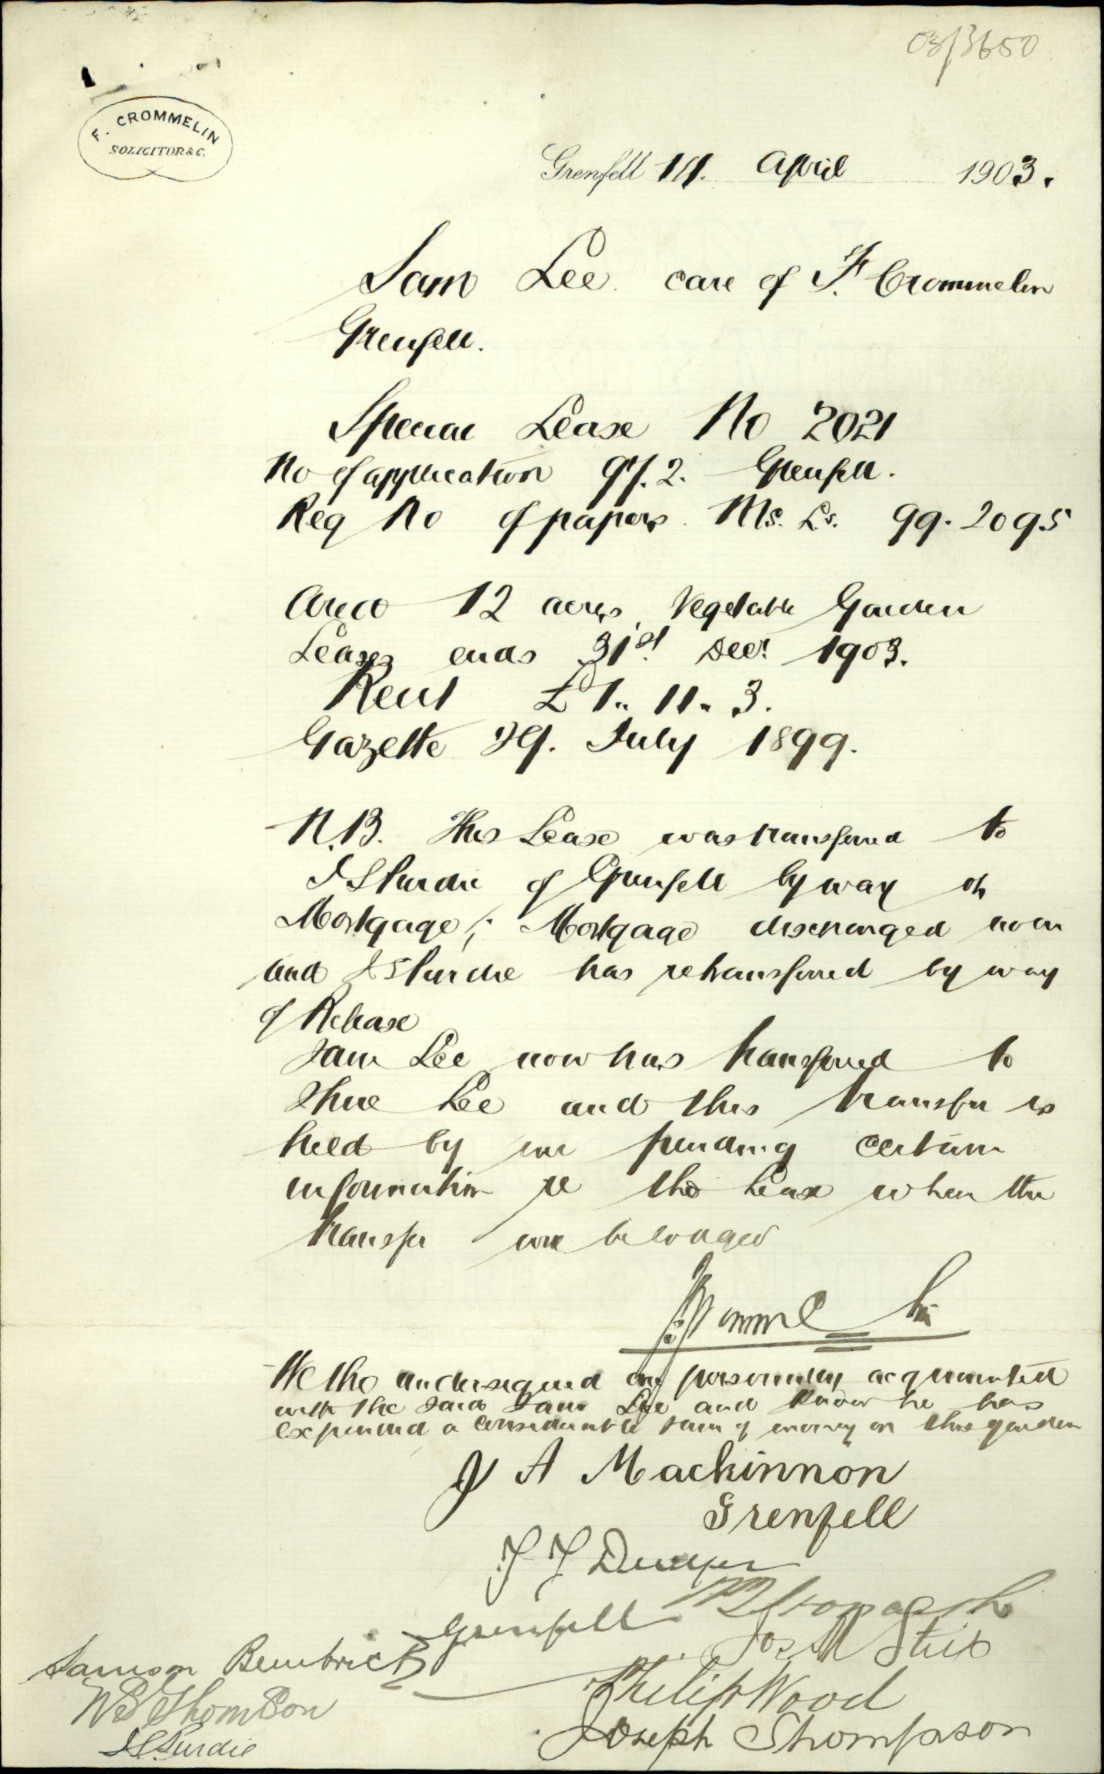 03/3650
F. CROMMELIN
SOLICITOR & C.
Grenfell 14. April 1903.
Sam Lee. care of F. Crommelin
Grenfell.
Special Lease No 2021
No of application 97.2. Grenfell.
Reg No of papers. Ms. Ls. 99.2095
Area 12 acres Vegetable Garden
Leases ends 31st. Decr 1903.
Rent £1.. 11.. 3.
Gazette 29. July 1899.
N.B. This Lease was transferred to
J S Purdie of Grenfell by way of
Mortgage; Mortgage discharged now
and J S Purdie has retransferred by way
of Release
Sam Lee now has transferred to
Lee and this transfer is
held by me pending certain
information re the Lease when the
transfer will be lodged
F Crommelin
We the undersigned are personally acquainted
with the said Sam Lee and know he has
expended a considerable sum of money on this garden
J A Mackinnon
Grenfell
Grenfell
Samson Bembrick
W S Thomson
J S Purdie
Philip Wood
Joseph Thompson